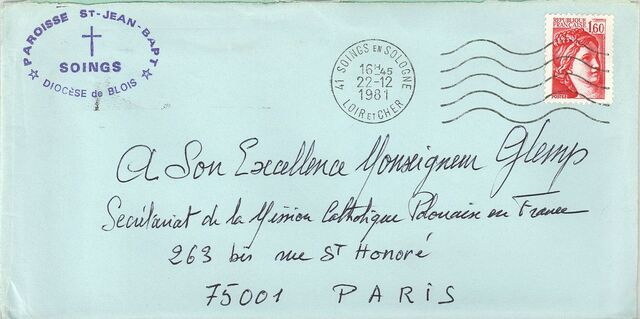 PAROISSE ST-JEAN-BAPT
SOINGS
DIOCÈSE de BLOIS
41 SOINGS EN SOLOGNE
16H45
22-12
1981
LOIR ET CHER
REPUBLIQUE
FRANÇAISE 1,60
POSTES
A Son Excellence Monseigneur Glemp
Secrétariat de la Mission Catholique Polonaise en France
263 bis rue St Honoré
75001 PARIS